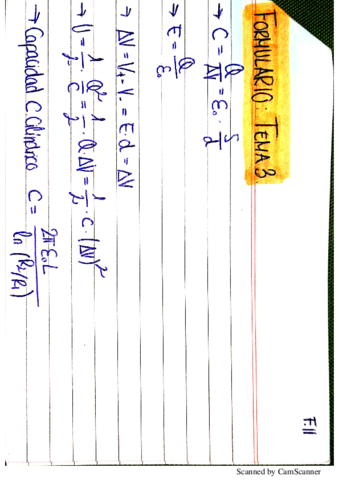 F.II
FORMULARIO: TEMA 3
→ C = Q/ΔV = ε₀ · S/d
→ E = Q/ε₀
→ ΔV = V₊ - V₋ = E · d = ΔV
→ U = 1/2 · Q²/C = 1/2 · Q · ΔV = 1/2 · C · (ΔV)²
→ Capacidad C. Cilíndrico C = 2π ε₀ L / ln (R₂/R₁)
Scanned by CamScanner